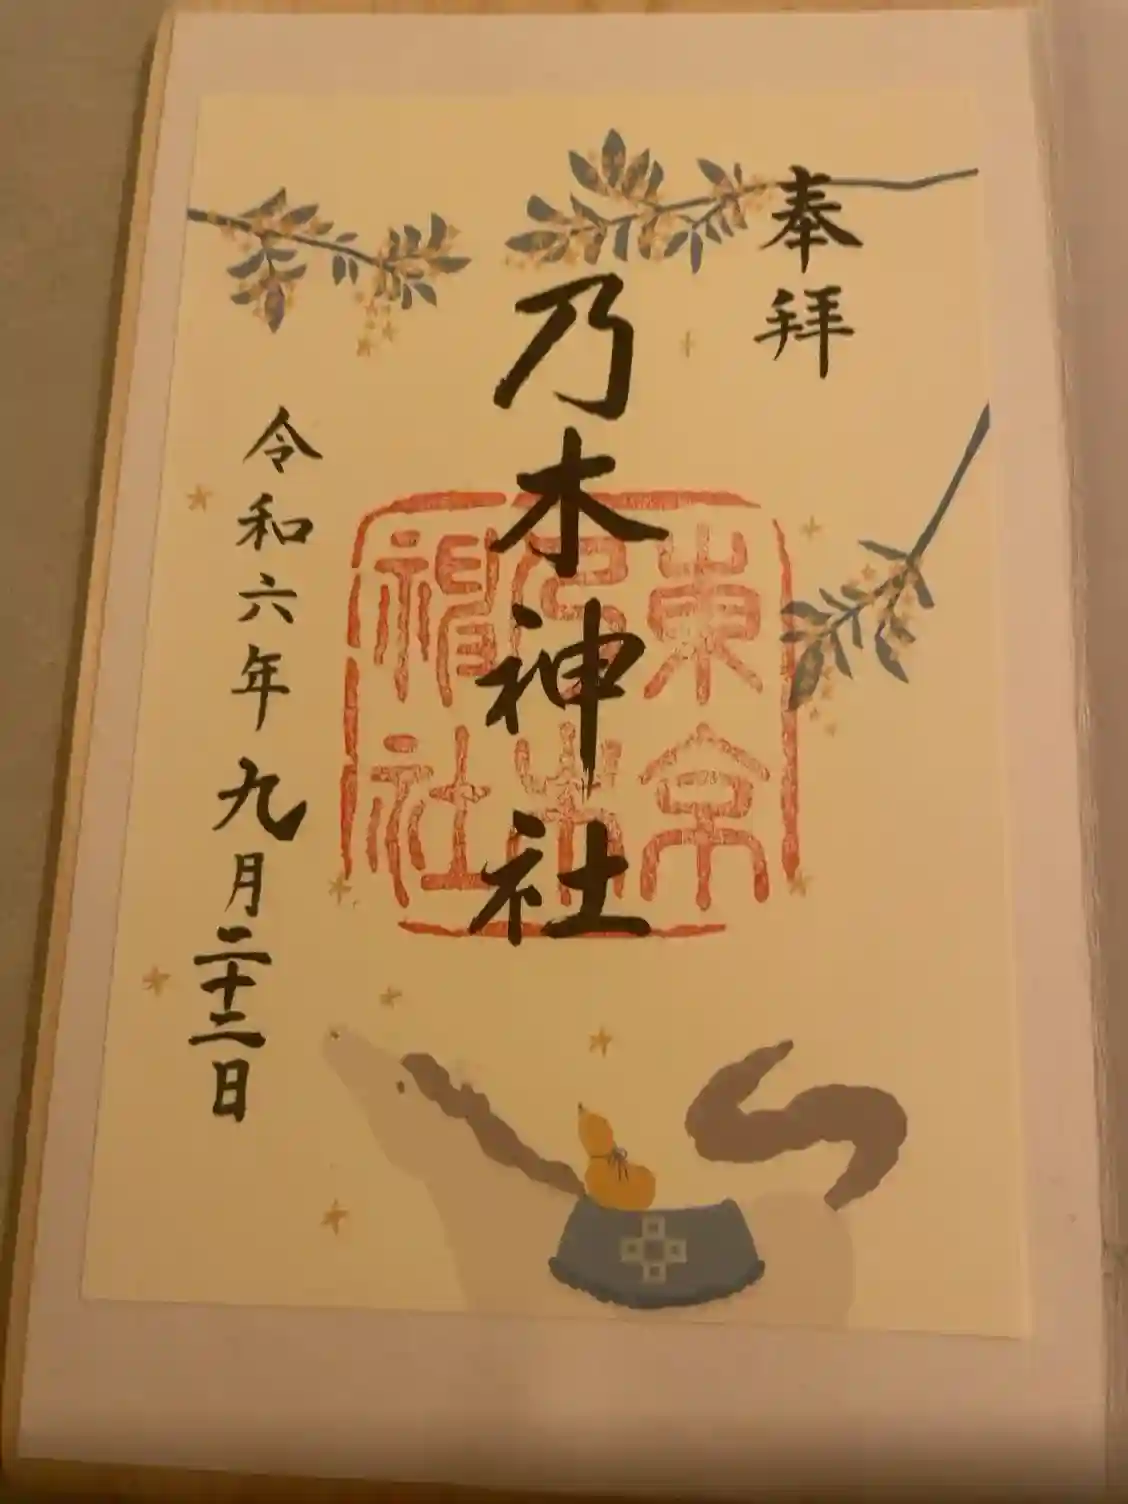 奉拝
乃木神社
東京
乃木
神社
令和六年九月二十二日